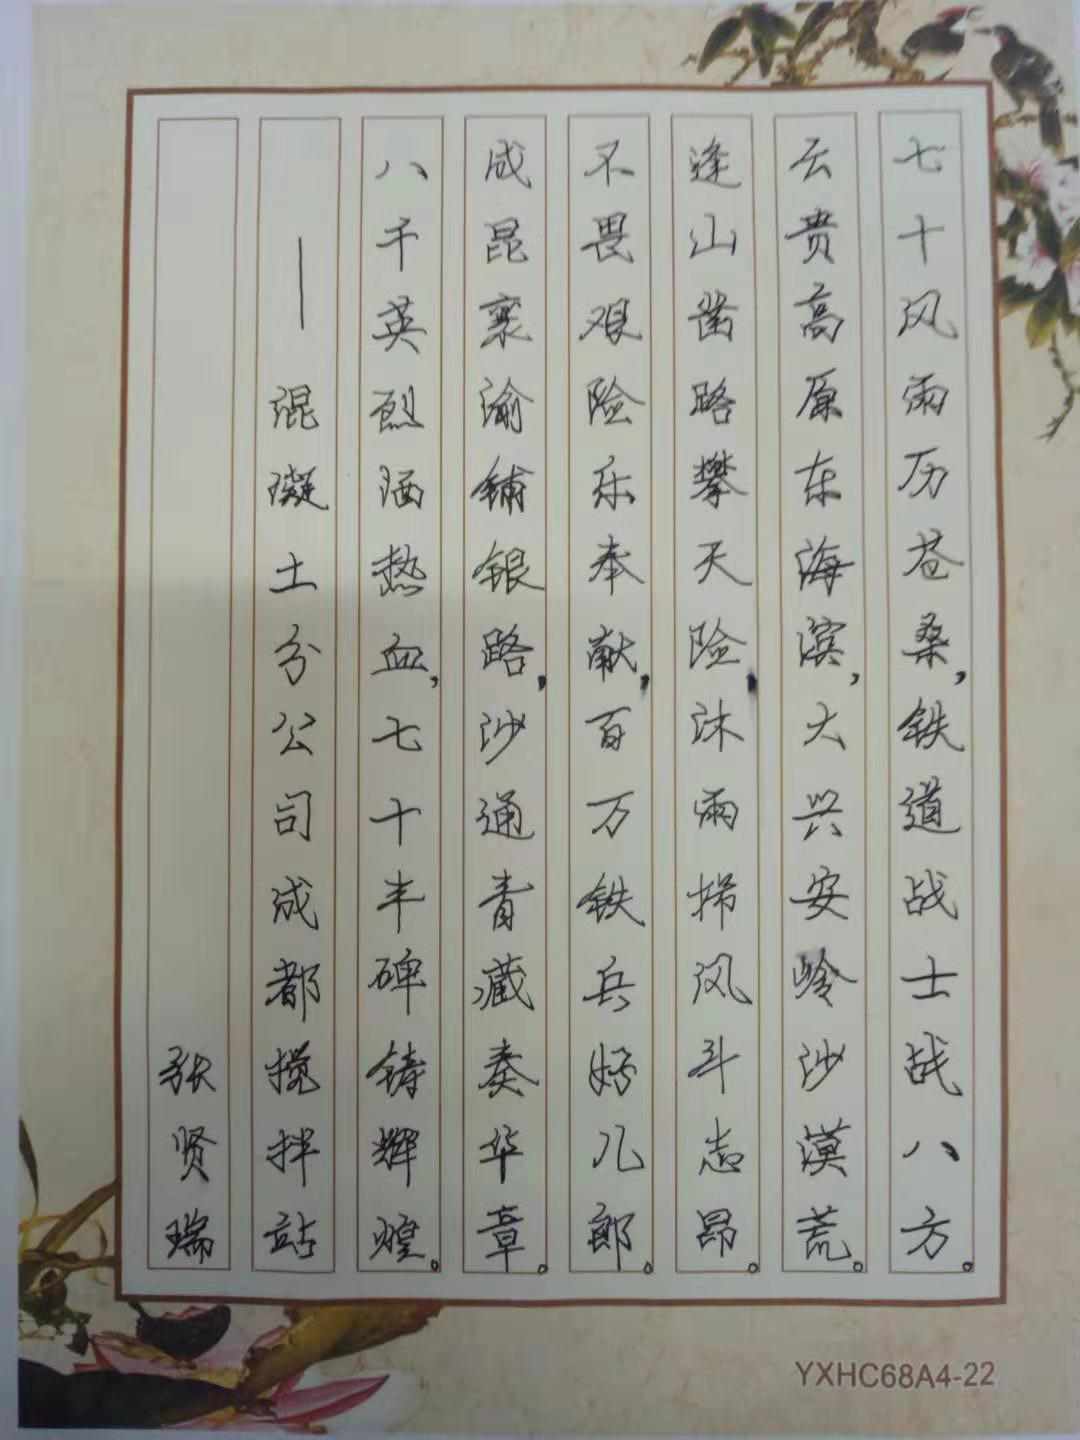 七十风雨历苍桑,铁道战士战八方。
云贵高原东海滨,大兴安岭沙漠荒。
逢山凿路攀天险,沐雨栉风斗志昂。
不畏艰险乐奉献,百万铁兵好儿郎。
成昆襄渝铺银路,沙通青藏奏华章。
八千英烈洒热血,七十丰碑铸辉煌。
——混凝土分公司成都搅拌站
张贤瑞
YXHC68A4-22